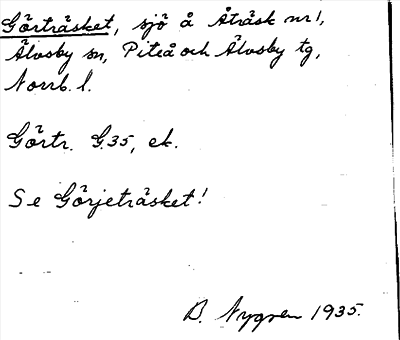 Görträsket, sjö å Åträsk nr 1,
Älvsby sn, Piteå och Älvsby tg,
Norrb. l.
Görtr. G.35, ek.
Se Görjeträsket!
B. Nygren 1935.